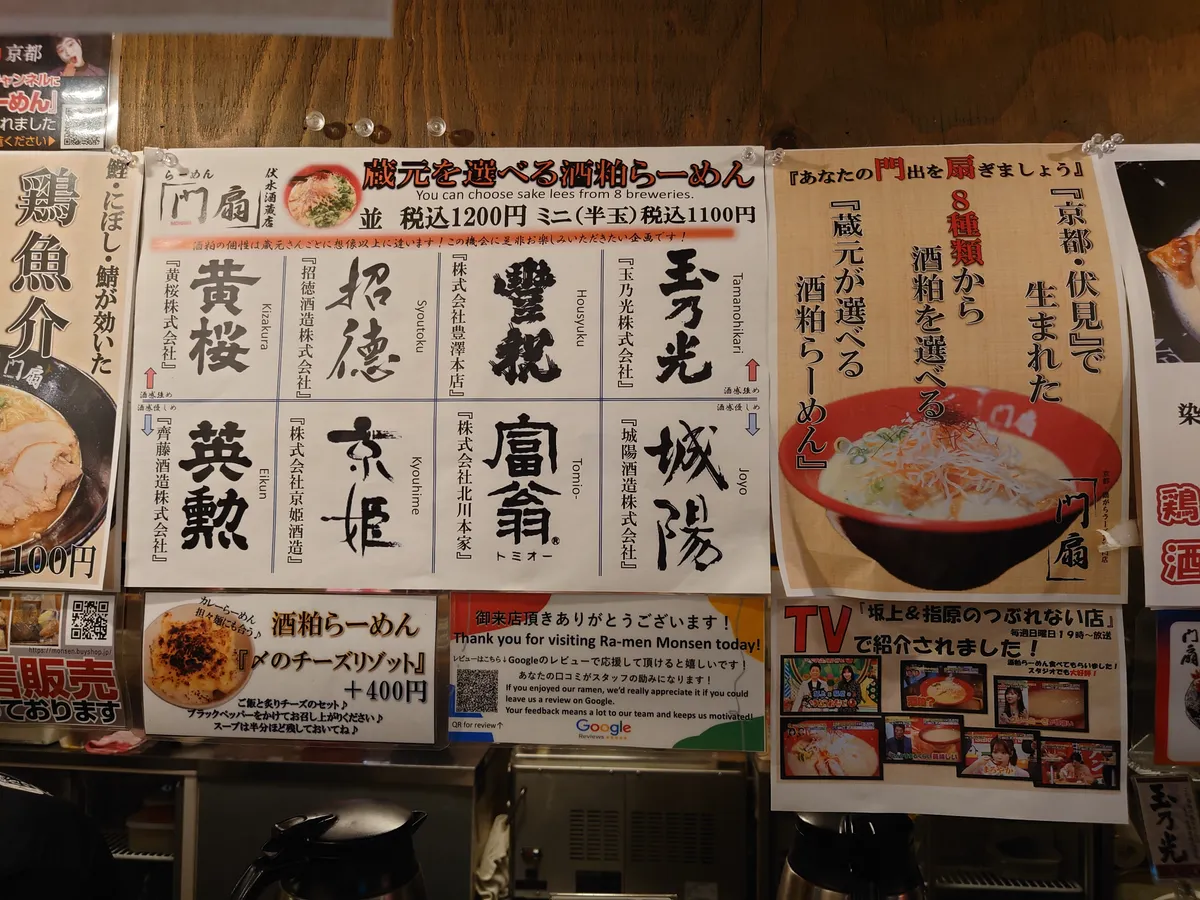 京都
ーめん』
れました
ください▶
鰹・にぼし・鯖が効いた
鶏魚介
門扇
1100円
https://monsen.buyshop.jp/
信販売
ております
らーめん
「門扇」
伏水酒蔵店
蔵元を選べる酒粕らーめん
You can choose sake lees from 8 breweries.
並 税込1200円 ミニ(半玉)税込1100円
酒粕の個性は蔵元さんごとに想像以上に違います!この機会に是非お楽しみいただきたい企画です!
玉乃光
Tamanohikari
『玉乃光株式会社』
豐祝
Housyuku
『株式会社豊澤本店』
招德
Syoutoku
『招徳酒造株式会社』
黄桜
Kizakura
『黄桜株式会社』
酒感強め
酒感強め
酒感優しめ
酒感優しめ
城陽
Joyo
『城陽酒造株式会社』
富翁®
トミオー
Tomio-
『株式会社北川本家』
京姫
Kyouhime
『株式会社京姫酒造』
英勲
Eikun
『齊藤酒造株式会社』
『あなたの門出を扇ぎましょう』
『京都・伏見』で
生まれた
8種類から
酒粕を選べる
『蔵元が選べる
酒粕らーめん』
「門扇」
カレーらーめん
担々麺にも合う♪
酒粕らーめん
『〆のチーズリゾット』
+400円
ご飯と炙りチーズのセット♪
ブラックペッパーをかけてお召し上がりください♪
スープは半分ほど残しておいてね♪
御来店頂きありがとうございます!
Thank you for visiting Ra-men Monsen today!
レビューはこちら↓
Googleのレビューで応援して頂けると嬉しいです!
あなたの口コミがスタッフの励みになります!
If you enjoyed our ramen, we'd really appreciate it if you could
leave us a review on Google.
Your feedback means a lot to our team and keeps us motivated!
QR for review↑
Google
Reviews
TV『坂上&指原のつぶれない店』
毎週日曜日19時〜放送
で紹介されました!
酒粕らーめん食べてもらいました!
スタジオでも大好評!
染
鶏
酒
玉乃光